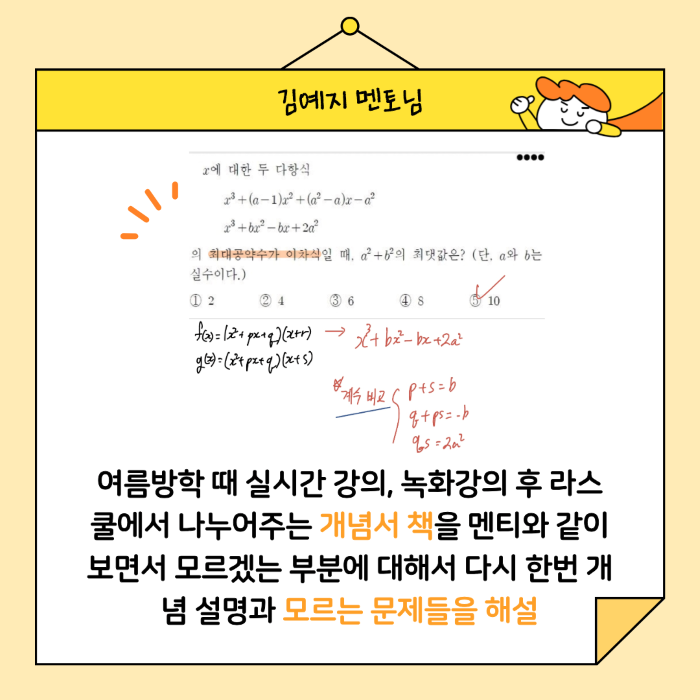 김예지 멘토님
x에 대한 두 다항식
x³+(a−1)x²+(a²−a)x−a²
x³+bx²−bx+2a²
의 최대공약수가 이차식일 때, a²+b²의 최댓값은? (단, a와 b는
실수이다.)
① 2 ② 4 ③ 6 ④ 8 ⑤ 10
f(x)=(x²+px+q)(x+r) → x³+bx²−bx+2a²
g(x)=(x²+px+q)(x+s)
계수 비교 p+s=b
q+ps=−b
qs=2a²
여름방학 때 실시간 강의, 녹화강의 후 라스
쿨에서 나누어주는 개념서 책을 멘티와 같이
보면서 모르겠는 부분에 대해서 다시 한번 개
념 설명과 모르는 문제들을 해설